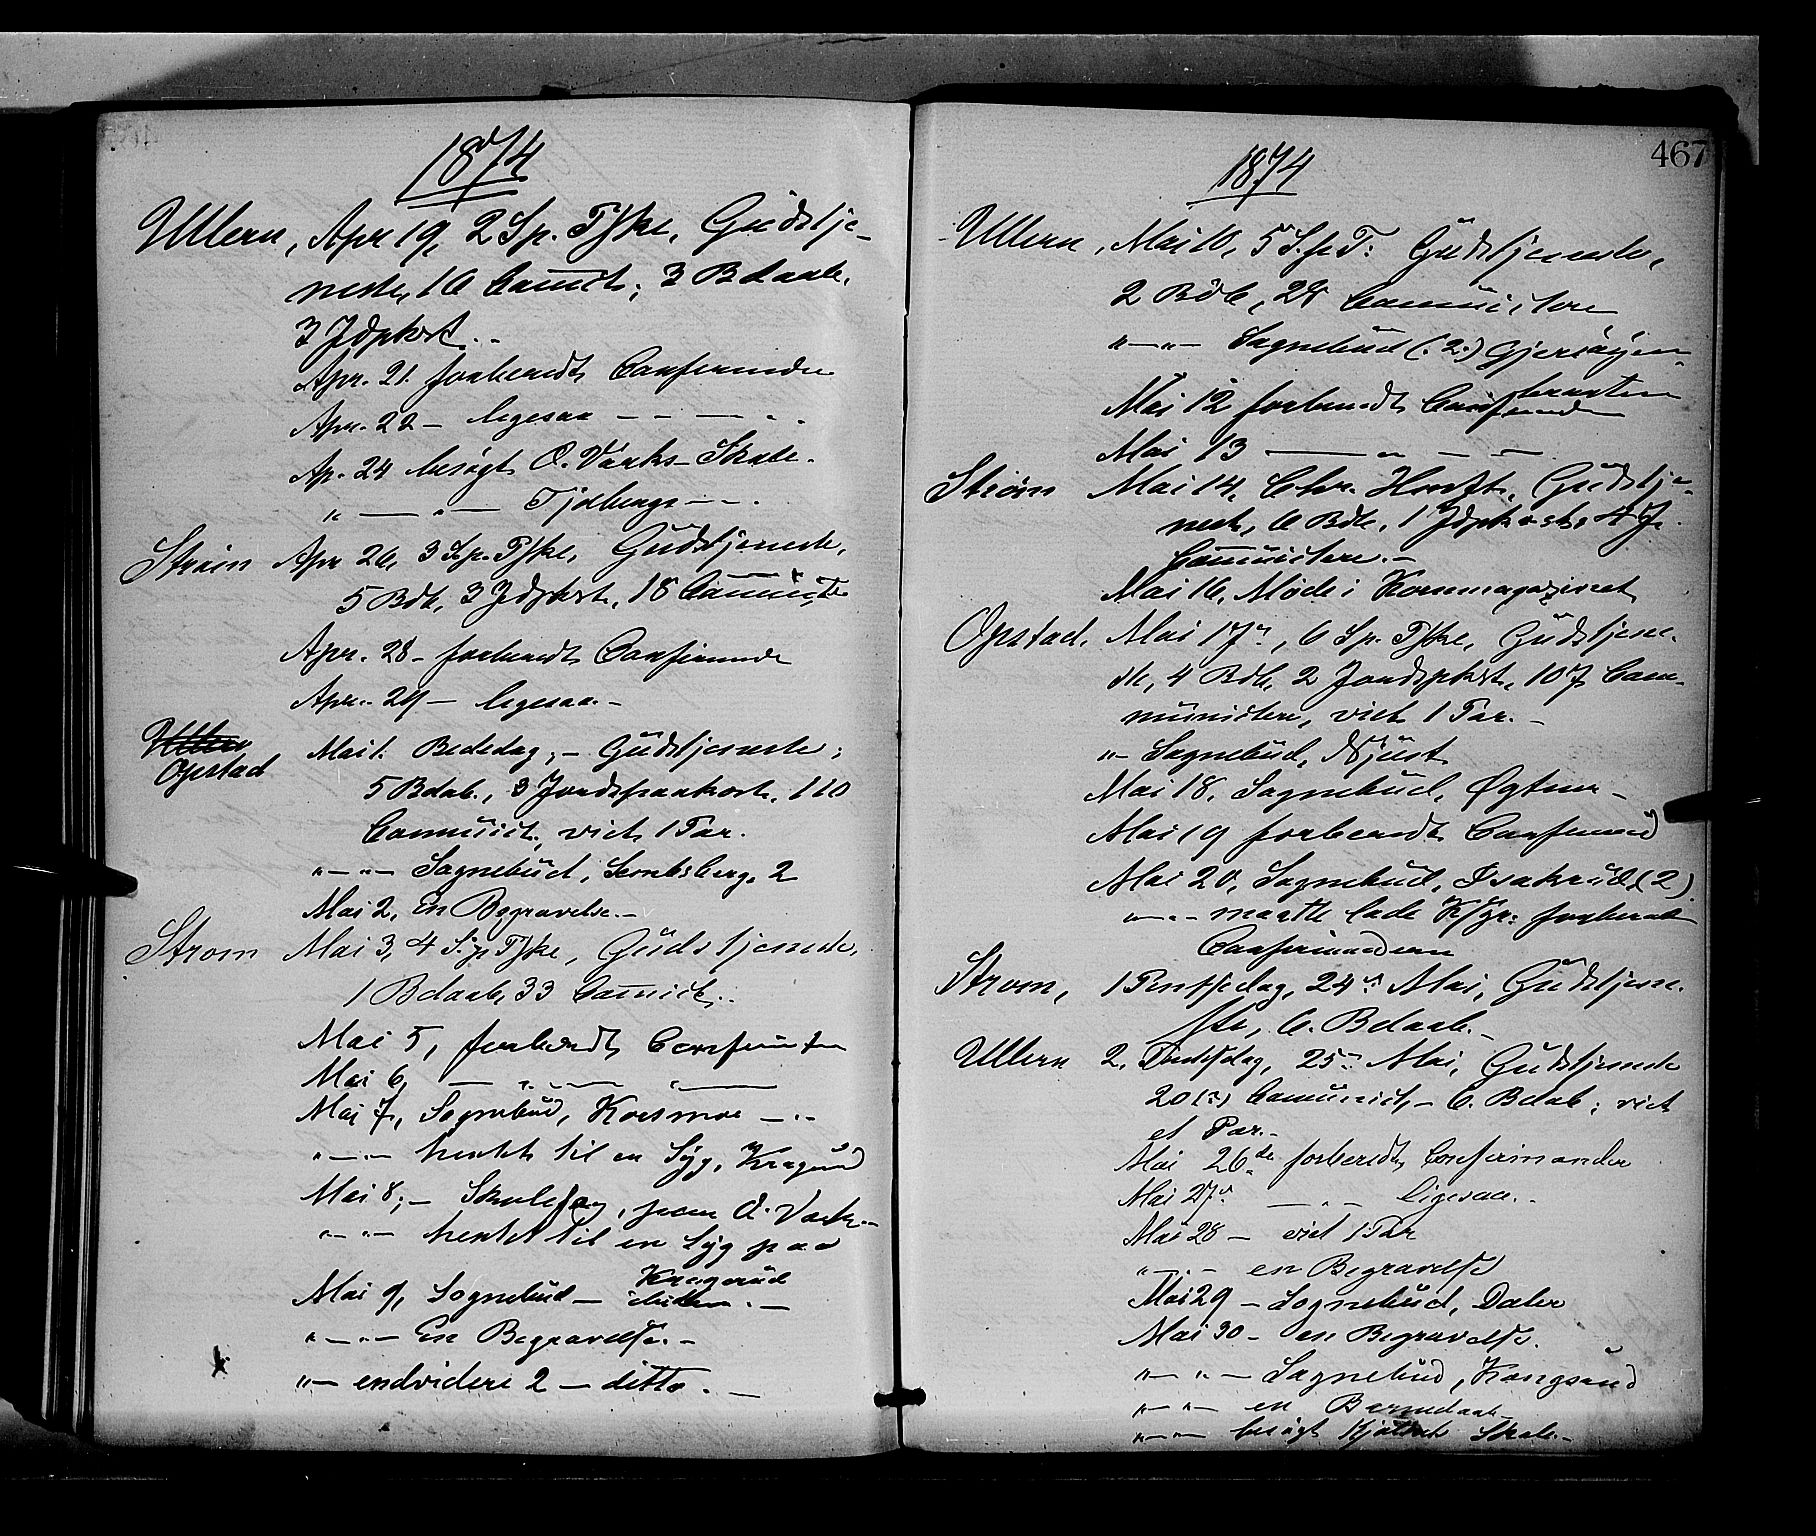 1874
Ullern, Apr 19, 2 S. p. Pske, Gudstje-
neste, 16 Communict; 3 Bdaab.
3 Jdpkst..
Apr. 21. forberedt Confirmder
Apr. 22 - ligesaa - - - -
Ap. 24 besøgt O. Værks-Skole.
" — " — Tjolbergs - -.
Strøm Apr 26, 3 S. p. Pske, Gudstjeneste,
5 Bdb, 3 Jdpkst, 18 Communicte
Apr. 28 - forberedt Confirmde
Apr. 29 - ligesaa.-
Ullern
Opstad Mai 1. Bededag, - Gudstjeneste;
5 Bdaab., 3 Jordspaakast., 110
Communict., viet 1 Par.
" - " - Sognebud, 2
Mai 2, En Begravelse.-
Strøm Mai 3, 4 S. p. Pske, Gudstjeneste,
1 Bdaab, 33 Communict..
Mai 5, forberedt Confirmder
Mai 6, — " — —
Mai 7, Sognebud, Korsmoe - . -
" - " - hentet til en Syg, Kragerud
Mai 8; - Skole, O. Værk.-
" - " - hentet til en Syg paa
Kragerud
Mai 9, Sognebud - . -
" - " - En Begravelse. -
" - endvidere 2 - ditto. -
467
1874
Ullern, Mai 10, 5 S. p. P: Gudstjeneste,
2 Bdb, 28 Communictere
" - " - Sognebud (: 2:)
Mai 12 forberedt Confirmde
Mai 13 — " — —
Strøm Mai 14, Chr. Hmft, Gudstje-
neste, 6 Bdb, 1 Jdpkast, 47
Communictere. -
Mai 16, Møde i Kornmagazinet
Opstad. Mai 17de, 6 S. p. Pske, Gudstjene-
ste, 4 Bdb, 2 Jordspkst, 107 Com-
munictere, viet 1 Par. -
" - Sognebud,
Mai 18, Sognebud, -
Mai 19 forberedt Confirmand
Mai 20, Sognebud, Isakrud (2)
" - " - maatte lade K/sgr: forberede
Confirmanderne
Strøm, 1 Pintsedag, 24de Mai, Gudstjene-
ste, 6. Bdaab. -
Ullern 2. Pintsedag, 25de Mai, Gudstjeneste
20 Communict, - 6. Bdaab; viet
et Par. -
Mai 26de forberedt Confirmander
Mai 27de — " — ligesaa..
Mai 28 - viet 1 Par
" - " - en Begravelse
Mai 29 - Sognebud, Daler
Mai 30 - en Begravelse.
" - " - Sognebud, Kongsrud
" - " - en Barnedaab -
" - " - besøgt Skole. -